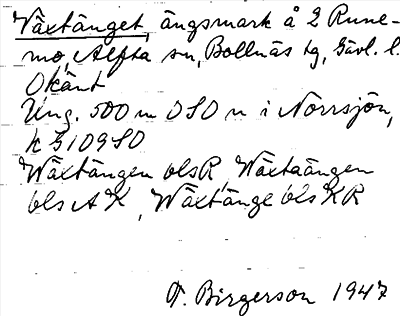 Växtänget, ängsmark å 2 Rune-
mo, Alfta sn, Bollnäs tg, Gävl. l.
Okänt
Ung. 500 m OSO n i Norrsjön,
k 5109 SO
Wäxtängen bls R, Wäxtaängen
bls A K, Wäxtänge bls KR
F. Birgerson 1947